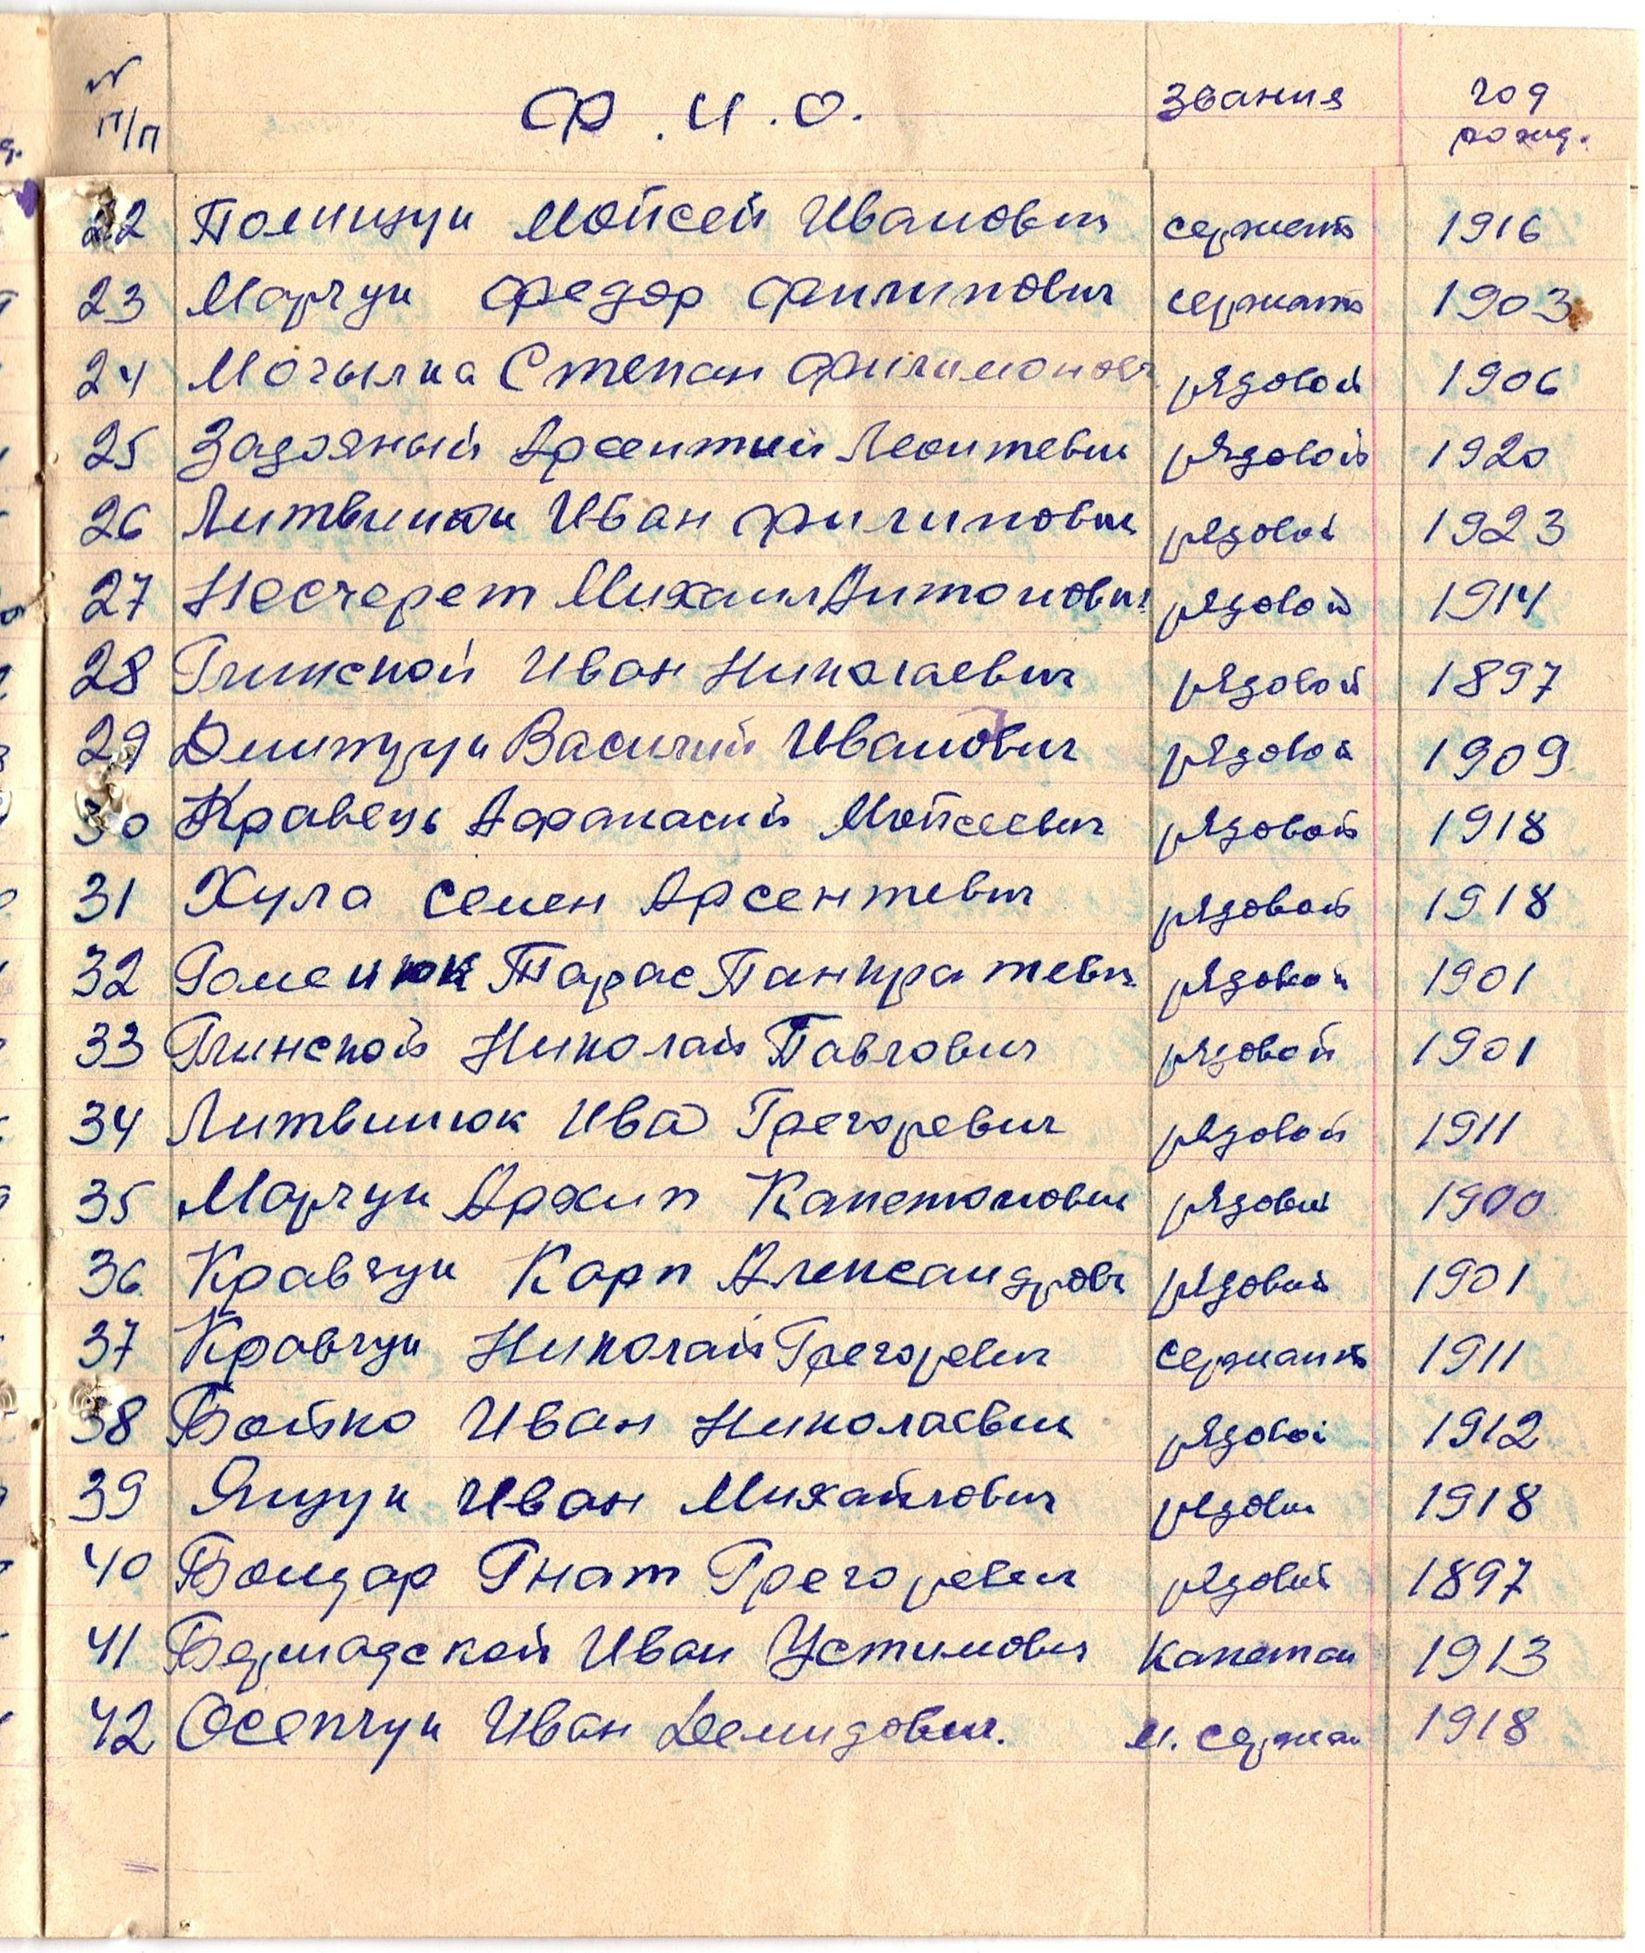 № п/п Ф.И.О. Звания год рожд.
22 Полищук Мойсей Иванович сержант 1916
23 Марчук Федор Филипович сержант 1903
24 Могылка Степан Филимонов рядовой 1906
25 Задояный Арсентий Леонтевич рядовой 1920
26 Литвинюк Иван Филипович рядовой 1923
27 Несчерет Михаил Антонович рядовой 1914
28 Глинской Иван Николаевич рядовой 1897
29 Дмитрук Василий Иванович рядовой 1909
30 Кравець Афанасий Мойсеевич рядовой 1918
31 Хула Семен Арсентевич рядовой 1918
32 Гоменюк Тарас Панкратевич рядовой 1901
33 Глинской Николай Павлович рядовой 1901
34 Литвинюк Иван Грегоревич рядовой 1911
35 Марчук Архип Капетонович рядовой 1900
36 Кравчук Карп Александрович рядовой 1901
37 Кравчук Николай Грегоревич сержант 1911
38 Бойко Иван Николаевич рядовой 1912
39 Ящук Иван Михайлович рядовой 1918
40 Бондар Гнат Грегоревич рядовой 1897
41 Бернадской Иван Устимович Капетан 1913
42 Осепчук Иван Демидович. м. сержан 1918